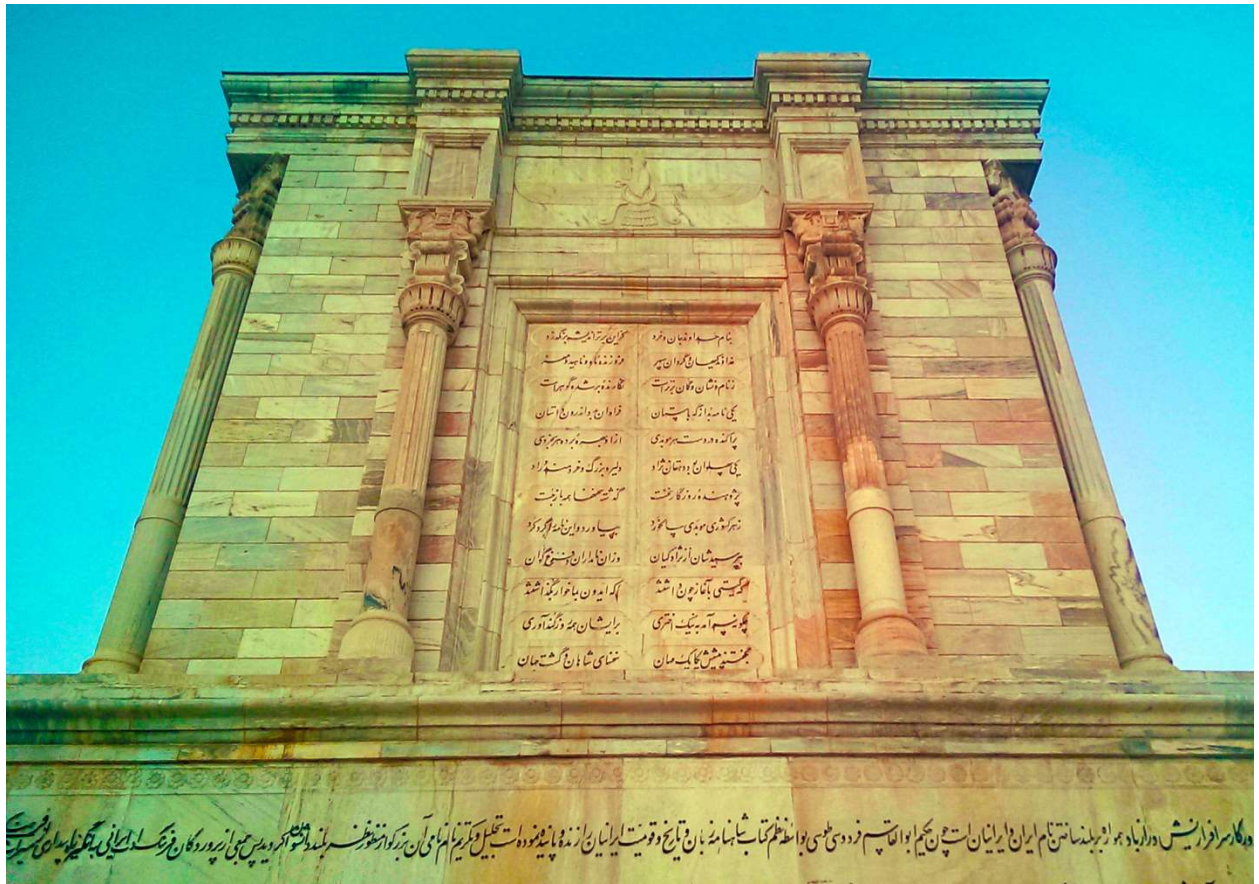 بنام خداوند جان و خرد کزین برتر اندیشه برنگذرد
خداوند کیهان و گردان سپهر فروزنده ماه و ناهید و مهر
ز نام و نشان و گمان برتر است نگارنده بر شده گوهر است
یکی نامه بد از گه باستان فراوان بدو اندرون داستان
پراکنده در دست هر موبدی ازو بهره برده هر بخردی
یکی پهلوان بود دهقان نژاد دلیر و بزرگ و خردمند و راد
پژوهنده روزگار نخست گذشته سخنها همه باز جست
ز هر کشوری موبدی سالخورد بیاورد و این نامه را گرد کرد
بپرسیدشان از نژاد کیان وزان نامداران و فرخ گوان
که گیتی به آغاز چون داشتند که ایدون بما خوار بگذاشتند
چگونه سر آمد به نیک اختری برایشان همه روز گندآوری
بگفتند پیشش یکایک مهان سخنهای شاهان و گشت جهان
روزگار سرافرازیش دراز باد همواره بر بلند ساختن نام ایران و ایرانیان است چون حکیم ابوالقاسم فردوسی طوسی بواسطه نظم کتاب شاهنامه زبان و تاریخ و قومیت ایرانیان را زنده و پاینده نموده است تجلیل و تکریم نام نامی آن بزرگوار منظور نظر بلند گردید پس جمعی از پروردگان فرهنگ ایرانی